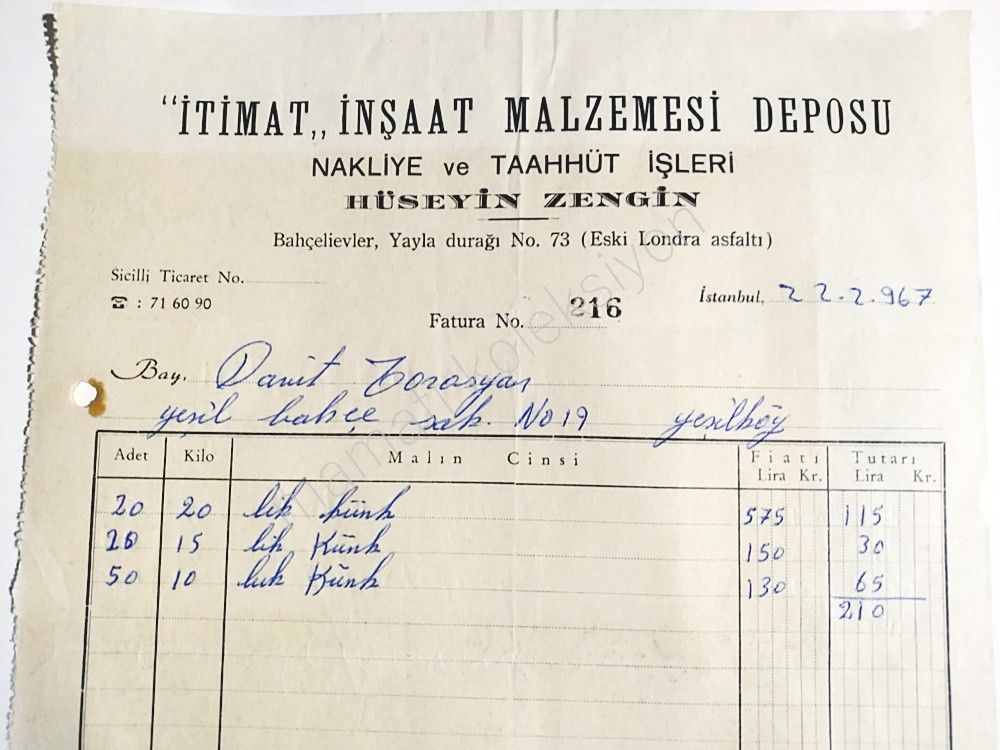 “İTİMAT„ İNŞAAT MALZEMESİ DEPOSU
NAKLİYE ve TAAHHÜT İŞLERİ
HÜSEYİN ZENGİN
Bahçelievler, Yayla durağı No. 73 (Eski Londra asfaltı)
Sicilli Ticaret No.
☎ : 71 60 90
İstanbul, 22.2.967
Fatura No. 216
Bay, Torosyan
yeşil bahçe sok. No 19 yeşilköy
Adet Kilo Malın Cinsi Fiatı Lira Kr. Tutarı Lira Kr.
20 20 lik künk 575 115
20 15 lik Künk 150 30
50 10 luk Künk 130 65
210
hamatkoleksiyon